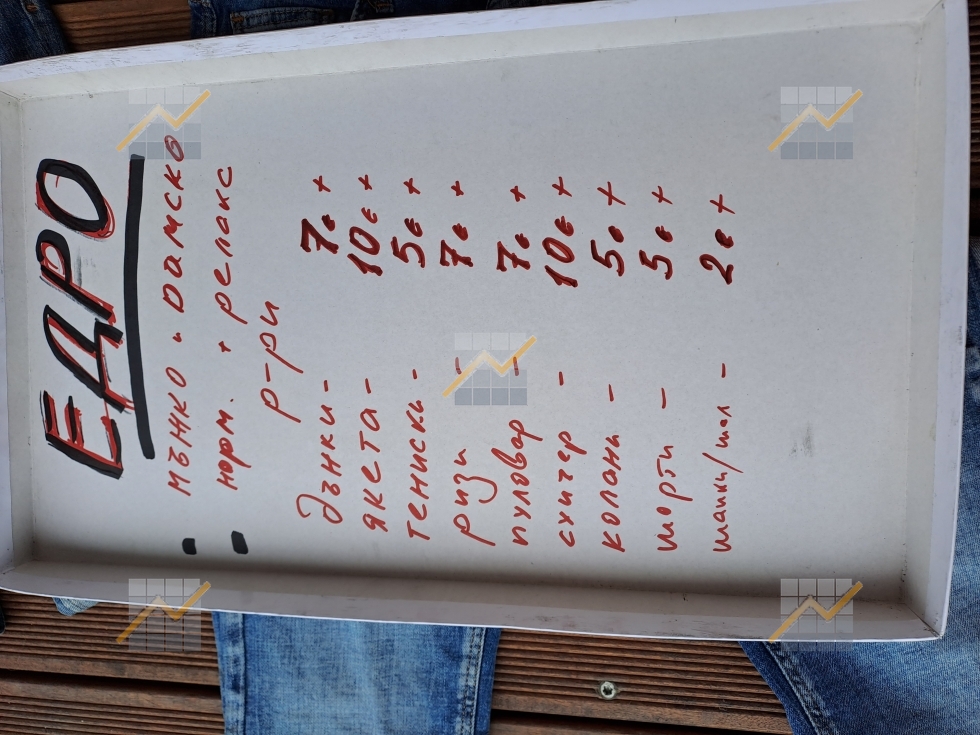 ЕДРО
- мъжко и дамско
- норм. + релакс
р-ри
Дънки - 7€ +
якета - 10€ +
тениски - 5€ +
ризи - 7€ +
пуловер - 7€ +
суичер - 10€ +
колани - 5€ +
шорти - 5€ +
шапки/шал - 2€ +